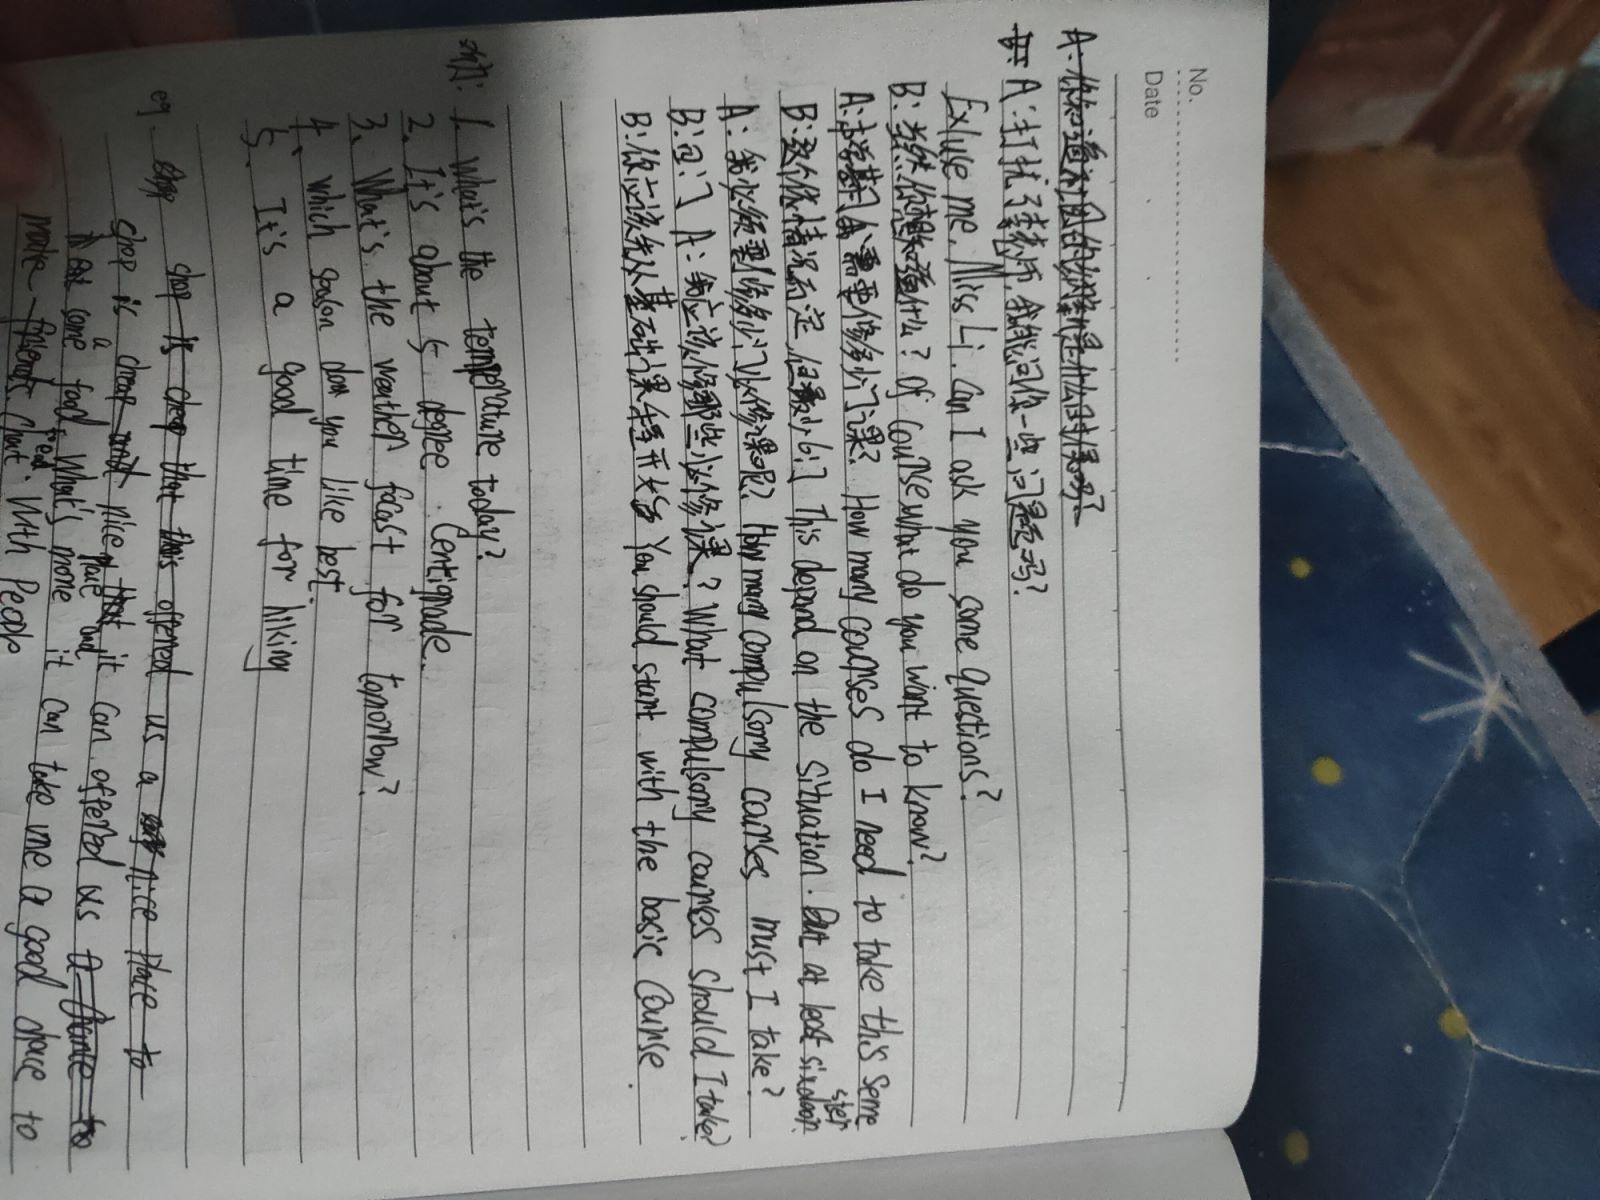 No.
Date
A: 你知道对図的切磋是什么时候吗?
B: A: 打扰了李老师 我能问你一些问题吗?
Exluse me. Miss Li. Can I ask you some questions?
B: 当然 你想知道什么? Of course what do you want to know?
A: 本学期 需要修多少门课? How many courses do I need to take this semester
B: 这个依情况而定,但最少6门 This depend on the situation. But at least six
A: 我必须要修多少门必修课呢? How many compulsory courses must I take?
B: 6门 A: 我应该修哪些必修课? What compulsory courses should I take?
B: 你应该先从基础课程开始 You should start with the basic Course.
1. What's the temperature today?
2. It's about 5 degree. Centigrade.
3. What's the weather focast for tomorrow?
4. which season do you like best.
5. It's a good time for hiking
eg. shop is cheap that this offered us a nice Place to
shop is cheap and nice Place and it can offered us a chance to
eat some food. What's more it can take me a good choice to
make friends. Chat With People